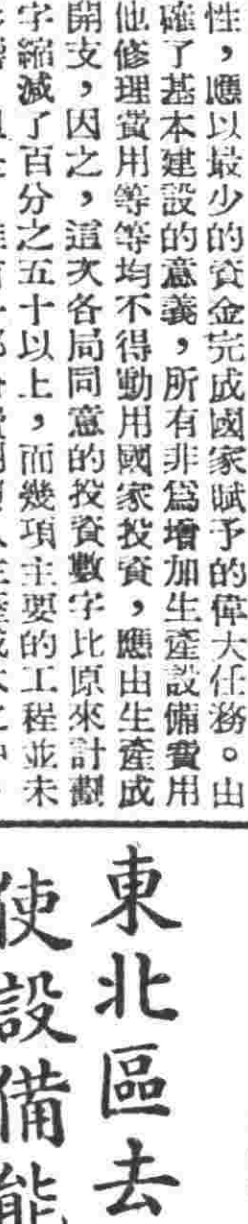 性，應以最少的資金完成國家賦予的偉大任務。由
確了基本建設的意義，所有非爲增加生產設備費用
他修理費用等等均不得動用國家投資，應由生產成
開支，因之，這次各局同意的投資數字比原來計劃
字縮減了百分之五十以上，而幾項主要的工程並未
東北區去
使設備能